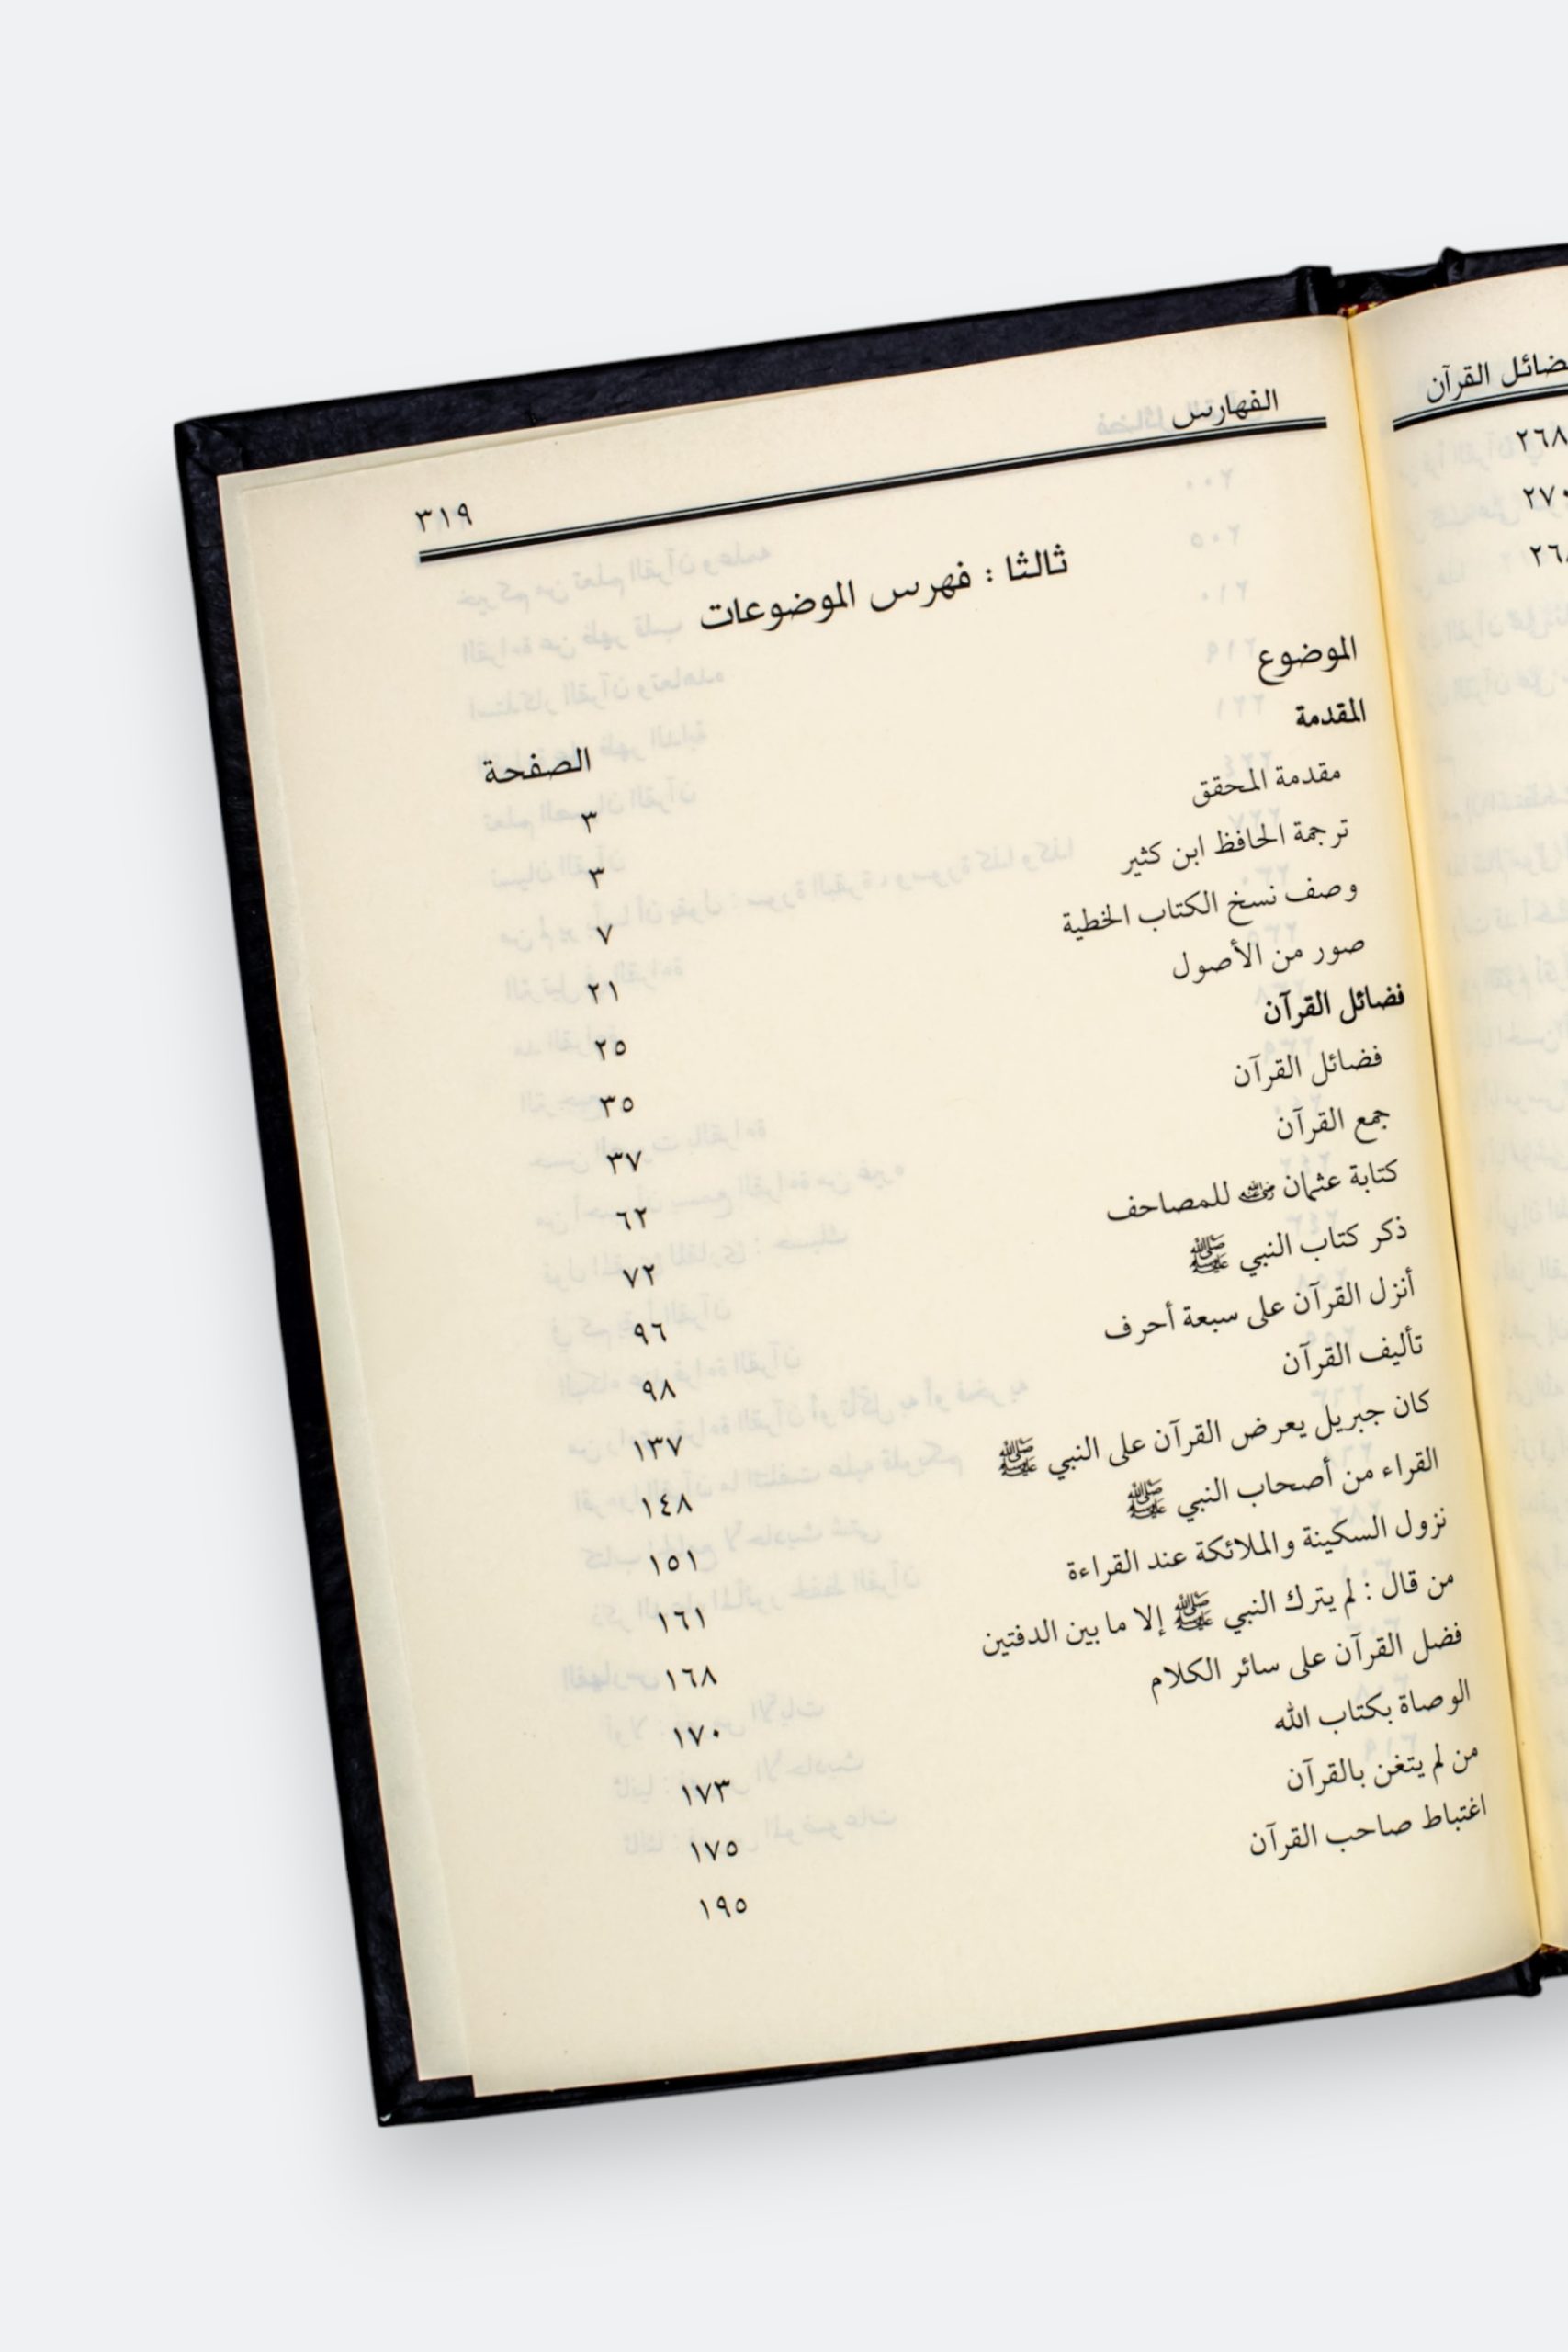 القرآن
٢٦٨
الفهارس ٣١٩
ثالثا : فهرس الموضوعات
الموضوع الصفحة
المقدمة ٣
مقدمة المحقق ٣
ترجمة الحافظ ابن كثير ٧
وصف نسخ الكتاب الخطية ٢١
صور من الأصول ٢٥
فضائل القرآن ٣٥
فضائل القرآن ٣٧
جمع القرآن ٦٢
كتابة عثمان رضي الله عنه للمصاحف ٧٢
ذكر كتاب النبي ﷺ ٩٦
أنزل القرآن على سبعة أحرف ٩٨
تأليف القرآن ١٣٧
كان جبريل يعرض القرآن على النبي ﷺ ١٤٨
القراء من أصحاب النبي ﷺ ١٥١
نزول السكينة والملائكة عند القراءة ١٦١
من قال : لم يترك النبي ﷺ إلا ما بين الدفتين ١٦٨
فضل القرآن على سائر الكلام ١٧٠
الوصاة بكتاب الله ١٧٣
من لم يتغن بالقرآن ١٧٥
اغتباط صاحب القرآن ١٩٥